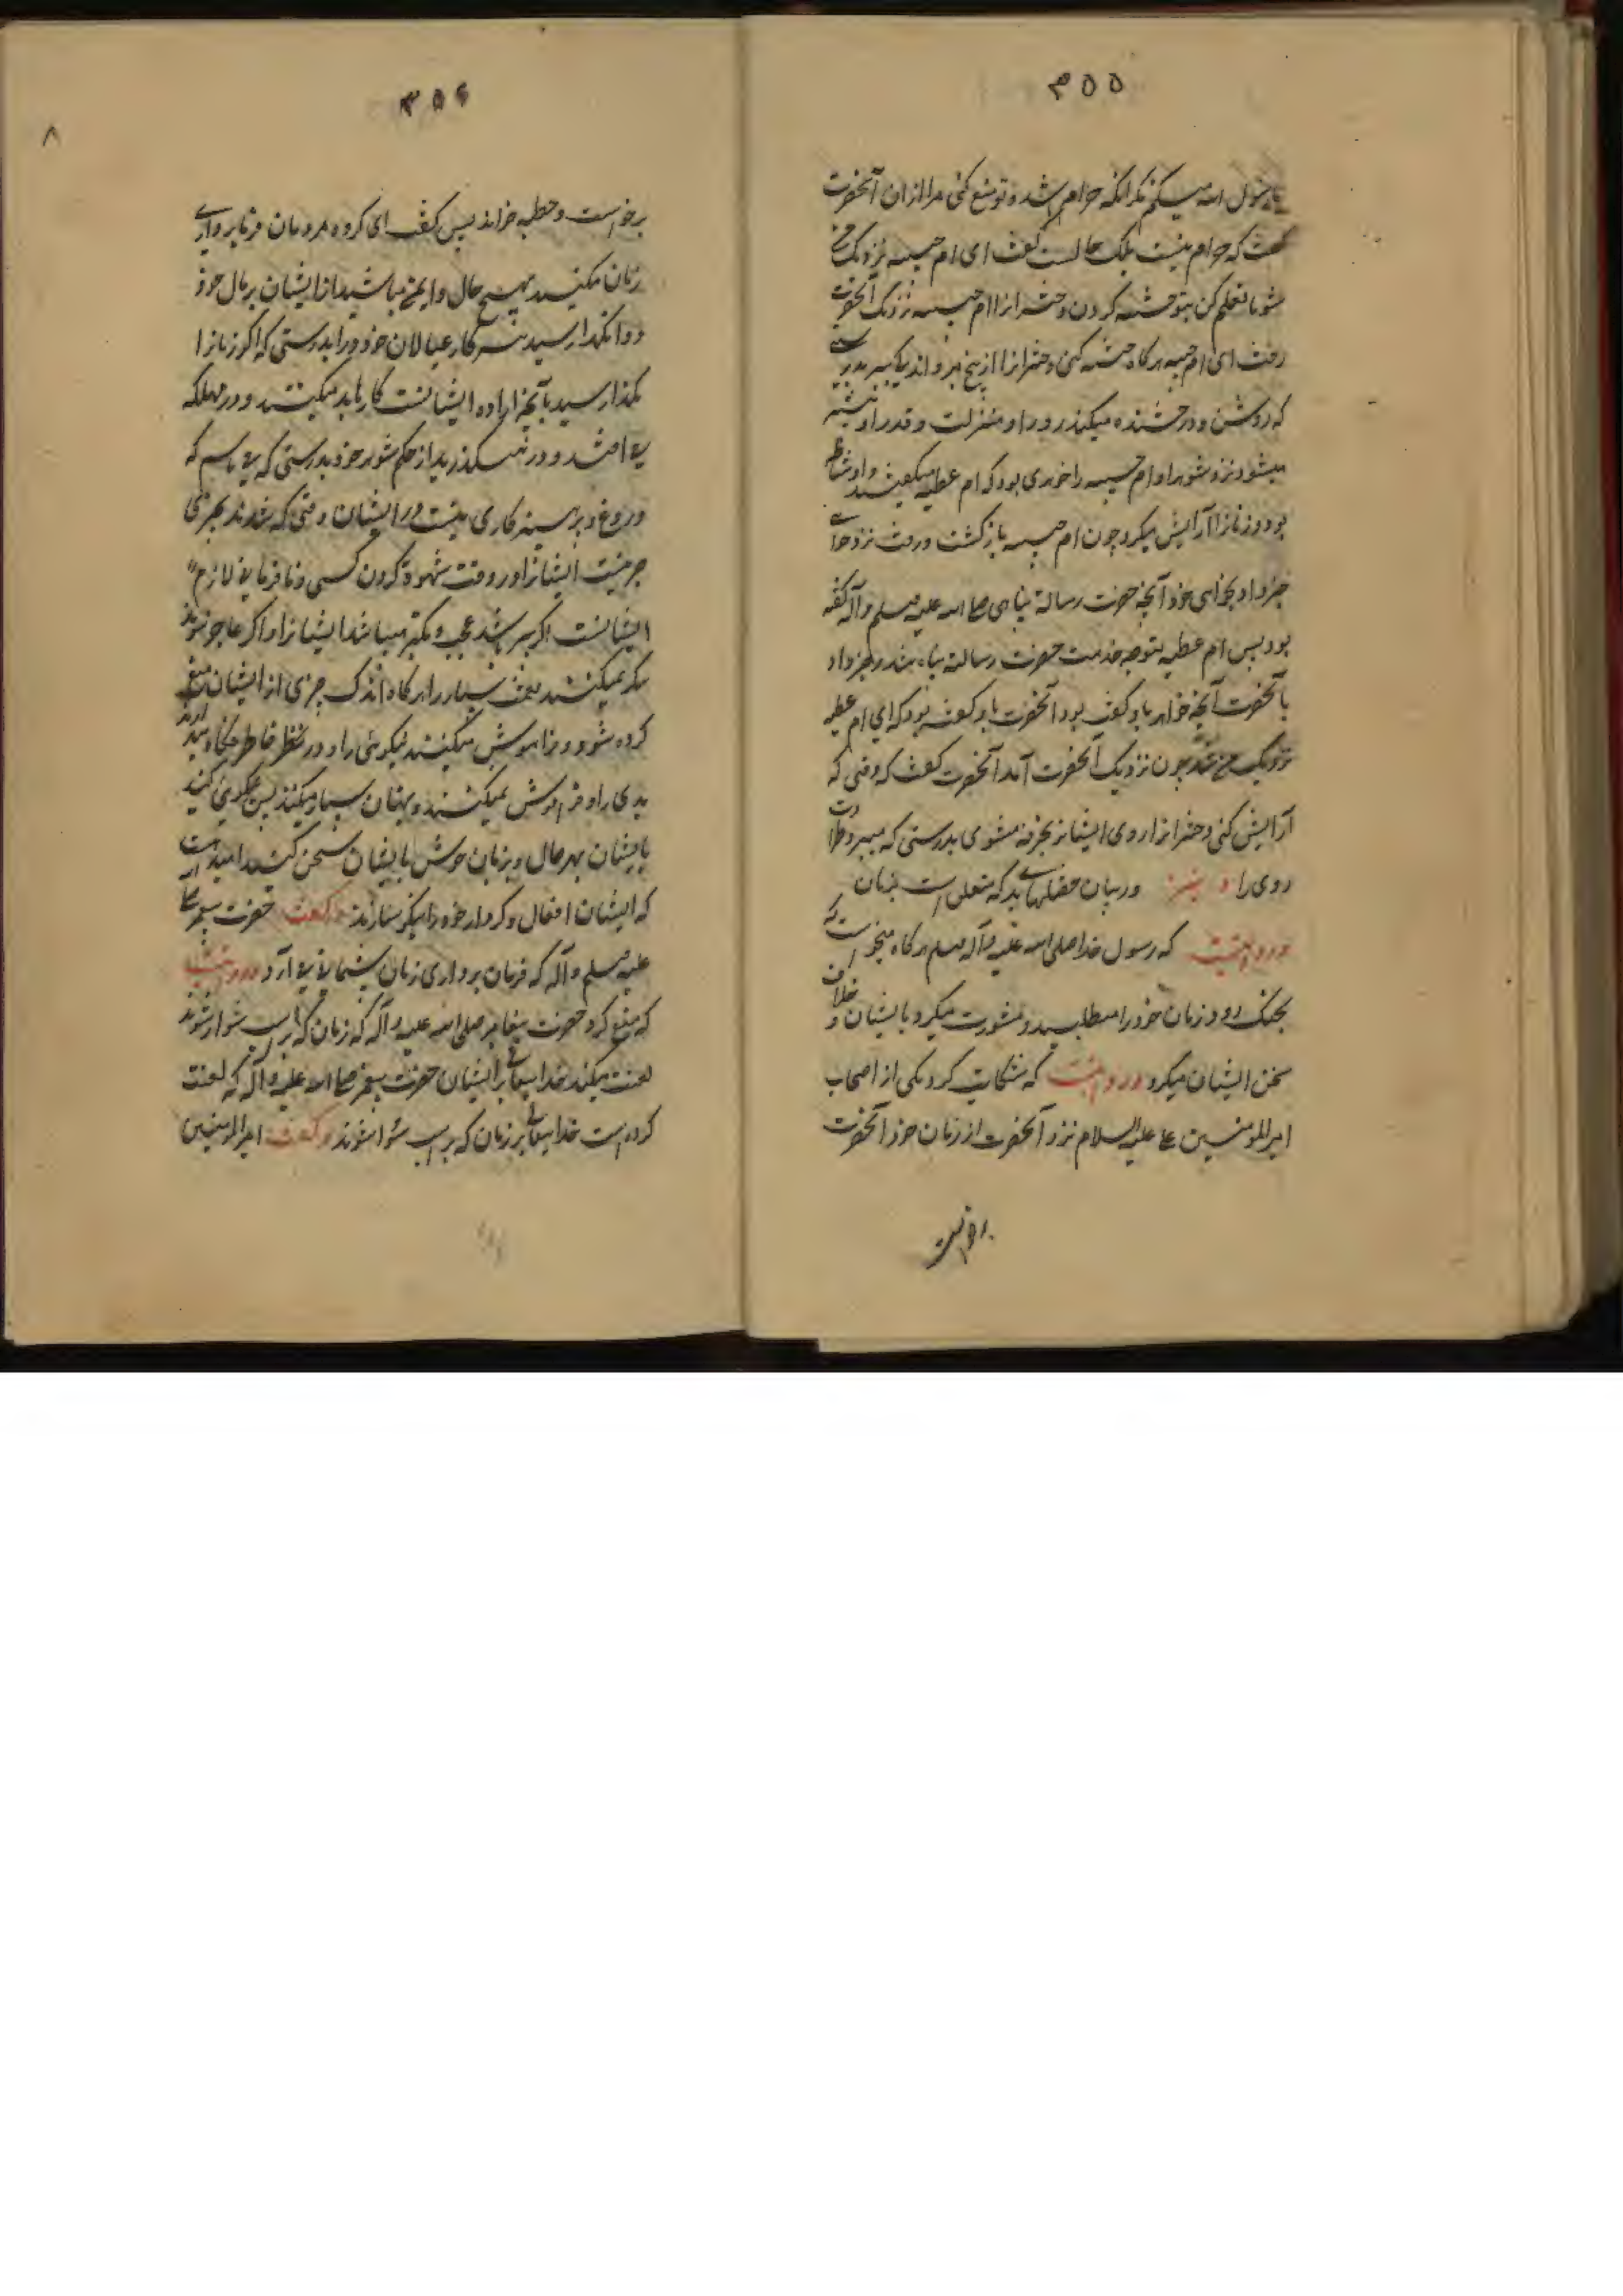 ۳۵۵
یا رسول الله میکنم مگر آنکه حرام باشد و تو منع کنی مرا از ان آنحضرت
گفت که حرام نیست بلکه حلالست گفت ای ام حبیبه نزدیک من
شو تا تعلیم کن بتو ختنه کردن دخترانرا ام حبیبه نزدیک آنحضرت
رفت ای ام حبیبه هرگاه ختنه کنی دخترانرا از بیخ مبر و اندکی بدرستی
که روشن و درخشنده میکند رو را و منزلت و قدر او بیشتر
میشود نزد شوهر و ام حبیبه را خواهری بود که ام عطیه میگفتند و او مشاطه
بود و زنانرا آرایش میکرد چون ام حبیبه بازگشت و رفت نزد خواهر
خبر داد بخواهر خود آنچه حضرت رسالة پناهی صلی الله علیه وسلم وآله گفته
بود پس ام عطیه متوجه خدمت حضرت رسالة پناه شد و خبر داد
بآنحضرت آنچه خواهر باو گفته بود آنحضرت باو گفته بود که ای ام عطیه
نزدیک من شو چون نزدیک آنحضرت آمد آنحضرت گفت که وقتی که
آرایش کنی دخترانرا روی ایشانرا بخرقه مشوی بدرستی که میبرد طراوت
روی را در بیان خصلتهای بد که متعلق است بزنان
و روایتست که رسول خدا صلی الله علیه وآله وسلم هرگاه میخواست که
بجنگ رود زنان خود را میطلبید و مشورت میکرد با ایشان و خلاف
سخن ایشان میکرد و روایتست که شکایت کرد یکی از اصحاب
امیرالمومنین علی علیه السلام نزد آنحضرت از زنان خود آنحضرت
برخواست
۳۵۶
۸
برخواست و خطبه خواند پس گفت ای گروه مردمان فرمانبرداری
زنان مکنید بهیچ حال و ایمن مباشید از ایشان بر مال خود
و وامگذارید سر کار عیالان خود را بدرستی که اگر زنانرا
بگذارید بآنچه اراده ایشانست کارهای بد میکنند و در مهلکه
می افتند و در میگذرند از حکم شوهر خود بدرستی که می یابیم که
ورع و پرهیزکاری نیست در ایشان وقتی که شدند بچیزی
صبر نیست ایشانرا در وقت شهوة کردن کسی و نافرمانی لازم
ایشانست اگر پیر باشند عجب و تکبر میباشد ایشانرا و اگر عاجز شوند
شکر نمیکنند نعمت بسیار را هرگاه اندک چیزی از ایشان منع
کرده شود و فراموش میکنند نیکوئی را و در نظر خاطر نگاه میدارند
بدی را و فراموش نمیکنند و بهتان بسیار میکنند پس نیکوئی کنید
بایشان بهر حال و بزبان خوش بایشان سخن کنید امید هست
که ایشان افعال و کردار خود را نیکو سازند و گفت حضرت پیغمبر صلی
علیه وسلم وآله که فرمان برداری زنان پشیمانی می آرد و روایتست
که منع کرد حضرت پیغامبر صلی الله علیه وآله که زنان که بر اسب سوار شوند
لعنت میکند خدایتعالی بر ایشان حضرت پیغمبر صلی الله علیه وآله که لعنت
کرده است خدایتعالی بر زنان که بر اسب سوار شوند و گفت امیرالمومنین